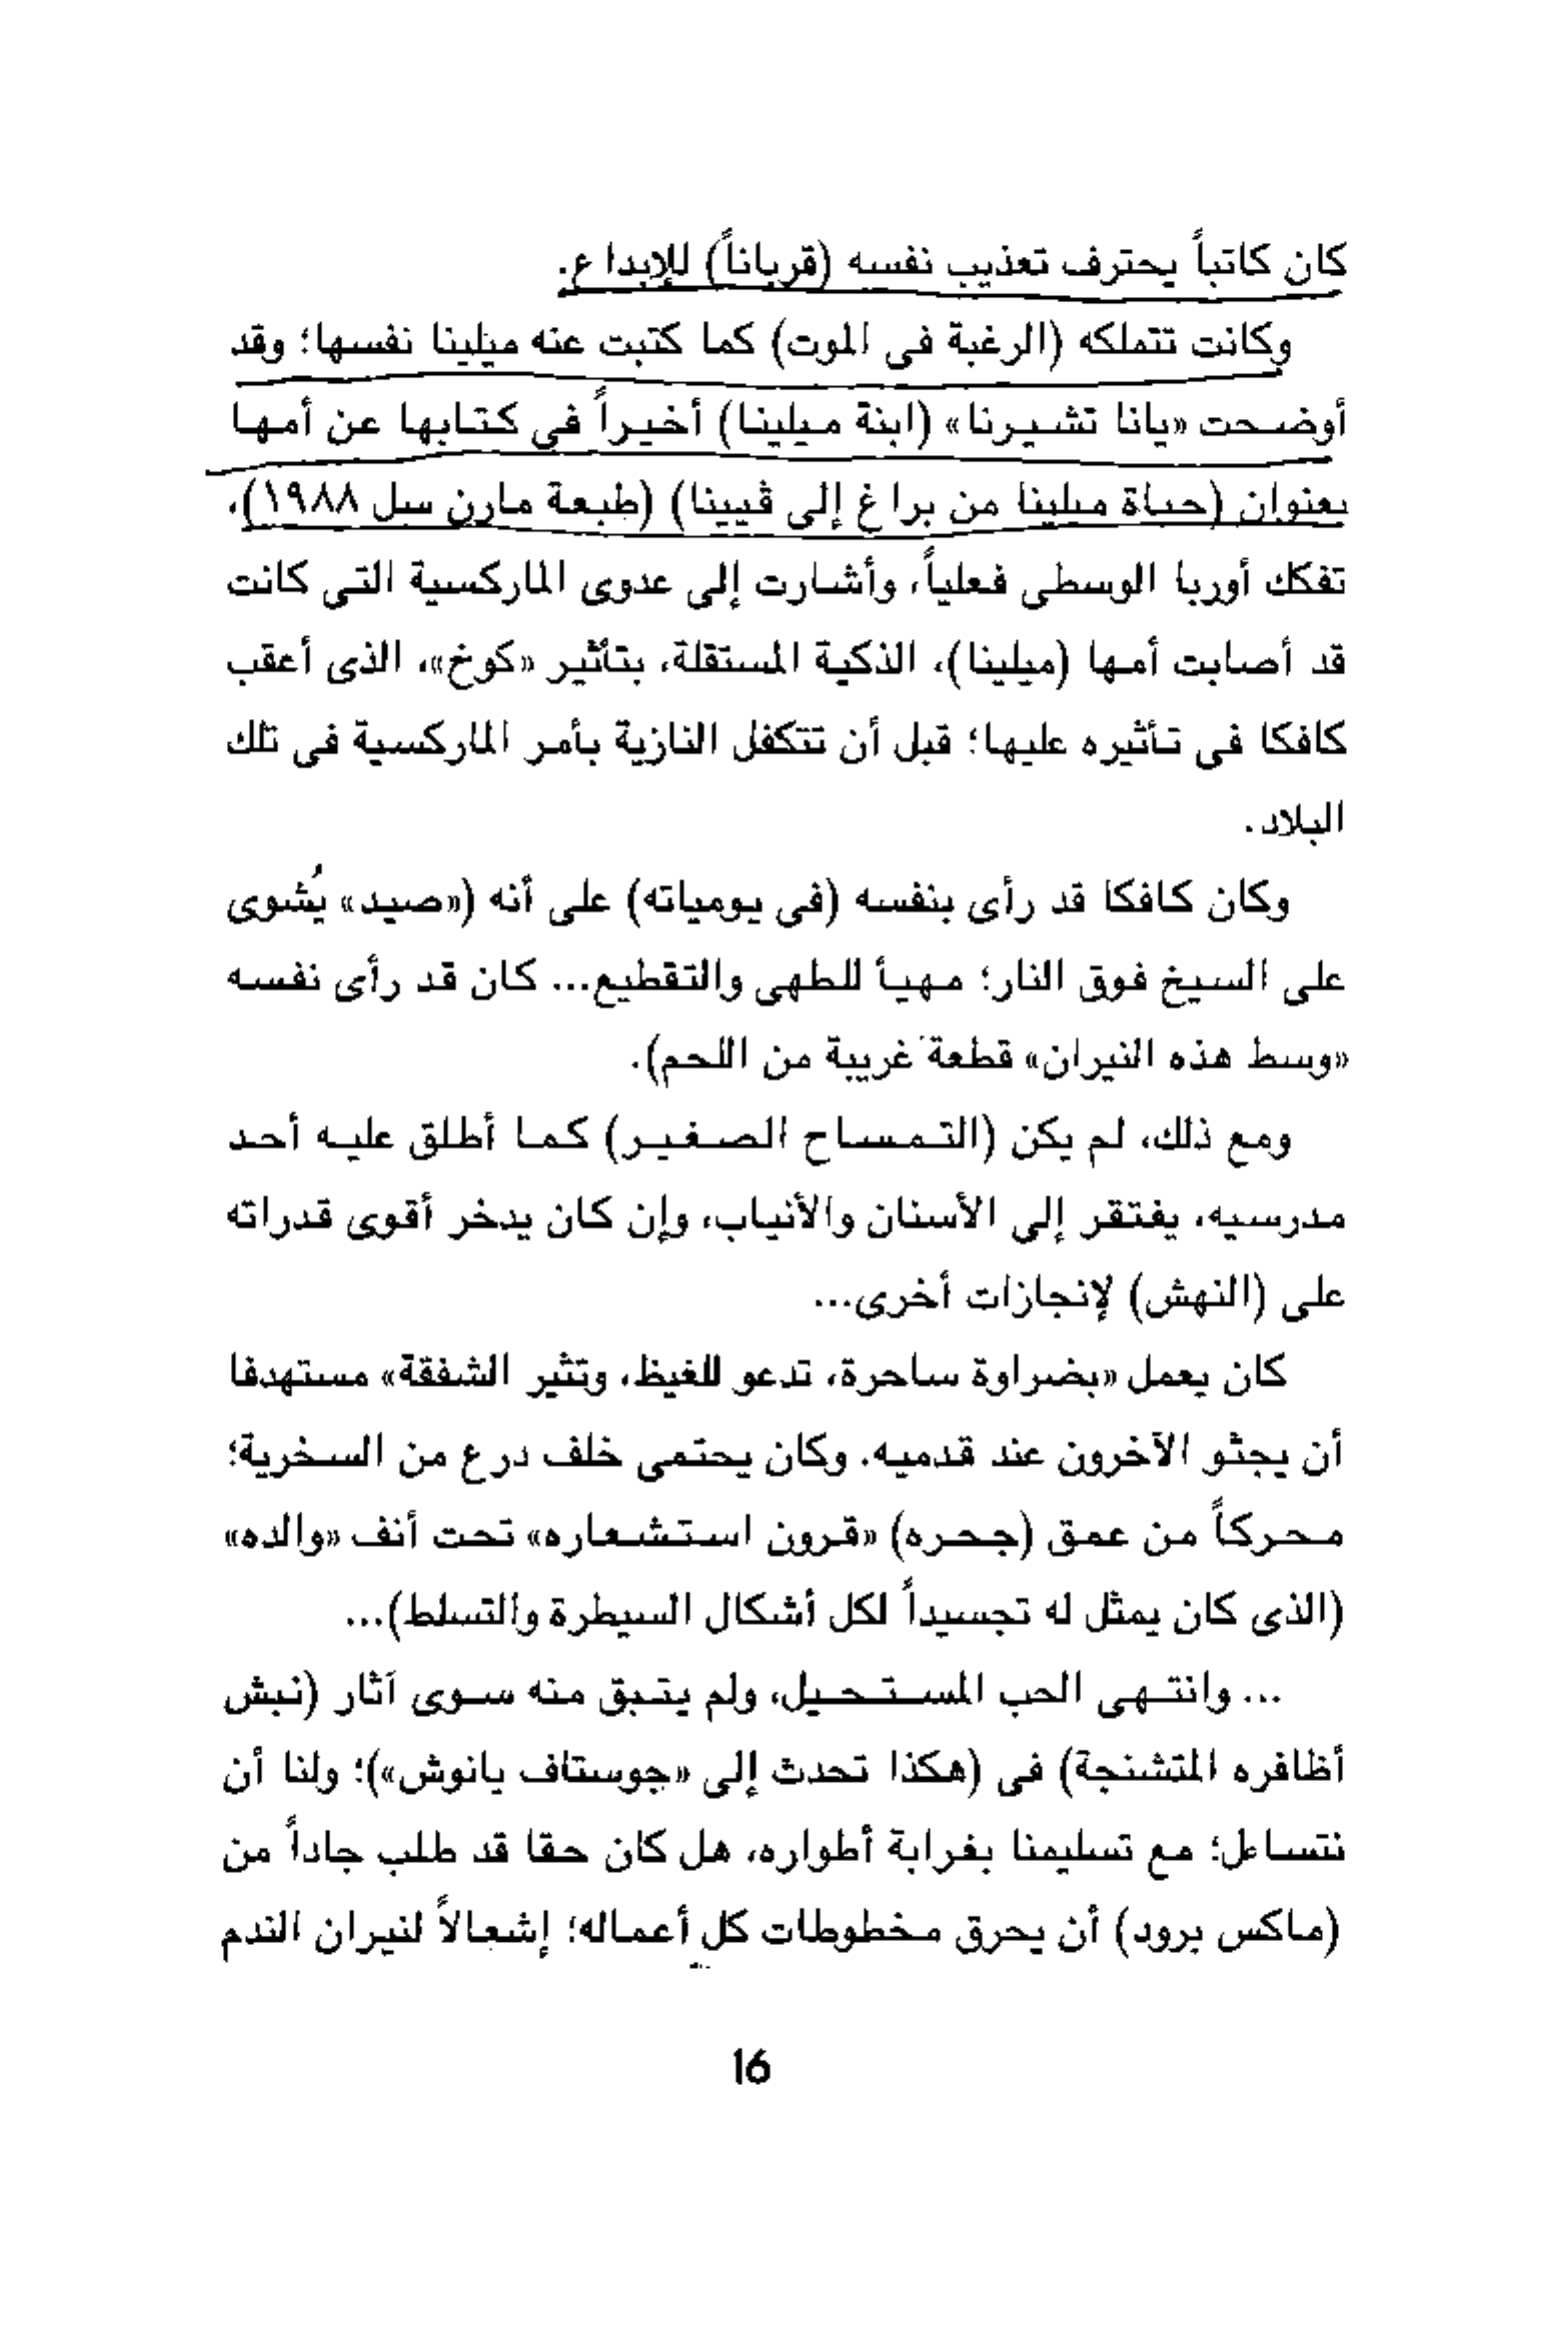 كان كاتباً يحترف تعذيب نفسه (قرباناً) للإبداع.
وكانت تتملكه (الرغبة فى الموت) كما كتبت عنه ميلينا نفسها؛ وقد
أوضحت «يانا تشيرنا» (ابنة ميلينا) أخيراً فى كتابها عن أمها
بعنوان (حياة ميلينا من براغ إلى ڤيينا) (طبعة مارن سل ١٩٨٨)،
تفكك أوربا الوسطى فعلياً، وأشارت إلى عدوى الماركسية التى كانت
قد أصابت أمها (ميلينا)، الذكية المستقلة، بتأثير «كوخ»، الذى أعقب
كافكا فى تأثيره عليها؛ قبل أن تتكفل النازية بأمر الماركسية فى تلك
البلاد.
وكان كافكا قد رأى بنفسه (فى يومياته) على أنه («صيد» يُشوى
على السيخ فوق النار؛ مهيأ للطهى والتقطيع... كان قد رأى نفسه
«وسط هذه النيران» قطعة غريبة من اللحم).
ومع ذلك، لم يكن (التمساح الصغير) كما أطلق عليه أحد
مدرسيه، يفتقر إلى الأسنان والأنياب، وإن كان يدخر أقوى قدراته
على (النهش) لإنجازات أخرى...
كان يعمل «بضراوة ساحرة، تدعو للغيظ، وتثير الشفقة» مستهدفا
أن يجثو الآخرون عند قدميه. وكان يحتمى خلف درع من السخرية؛
محركاً من عمق (جحره) «قرون استشعاره» تحت أنف «والده»
(الذى كان يمثل له تجسيداً لكل أشكال السيطرة والتسلط)...
... وانتهى الحب المستحيل، ولم يتبق منه سوى آثار (نبش
أظافره المتشنجة) فى (هكذا تحدث إلى «جوستاف يانوش»)؛ ولنا أن
نتساءل؛ مع تسليمنا بغرابة أطواره، هل كان حقا قد طلب جاداً من
(ماكس برود) أن يحرق مخطوطات كل أعماله؛ إشعالاً لنيران الندم
16